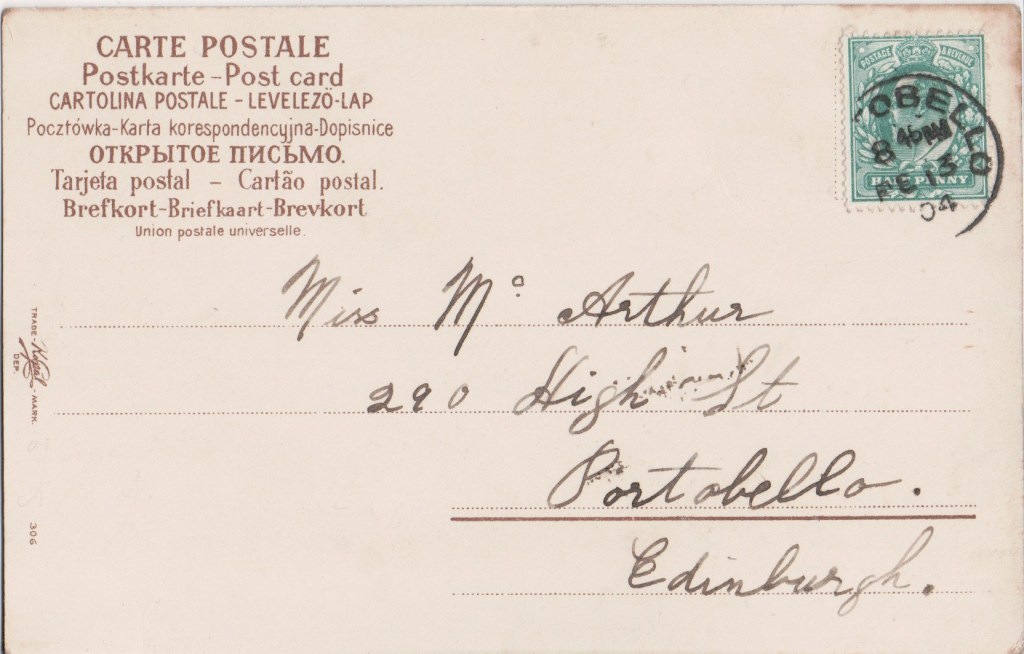 CARTE POSTALE
Postkarte-Post card
CARTOLINA POSTALE - LEVELEZŐ-LAP
Pocztówka-Karta korespondencyjna-Dopisnice
ОТКРЫТОЕ ПИСЬМО.
Tarjeta postal - Cartão postal.
Brefkort-Briefkaart-Brevkort
Union postale universelle.
POSTAGE & REVENUE
HALFPENNY
OBELLO
8 45 PM
FE 13
04
Miss Mc Arthur
290 High St
Portobello.
Edinburgh.
TRADE-MARK.
DEP.
306